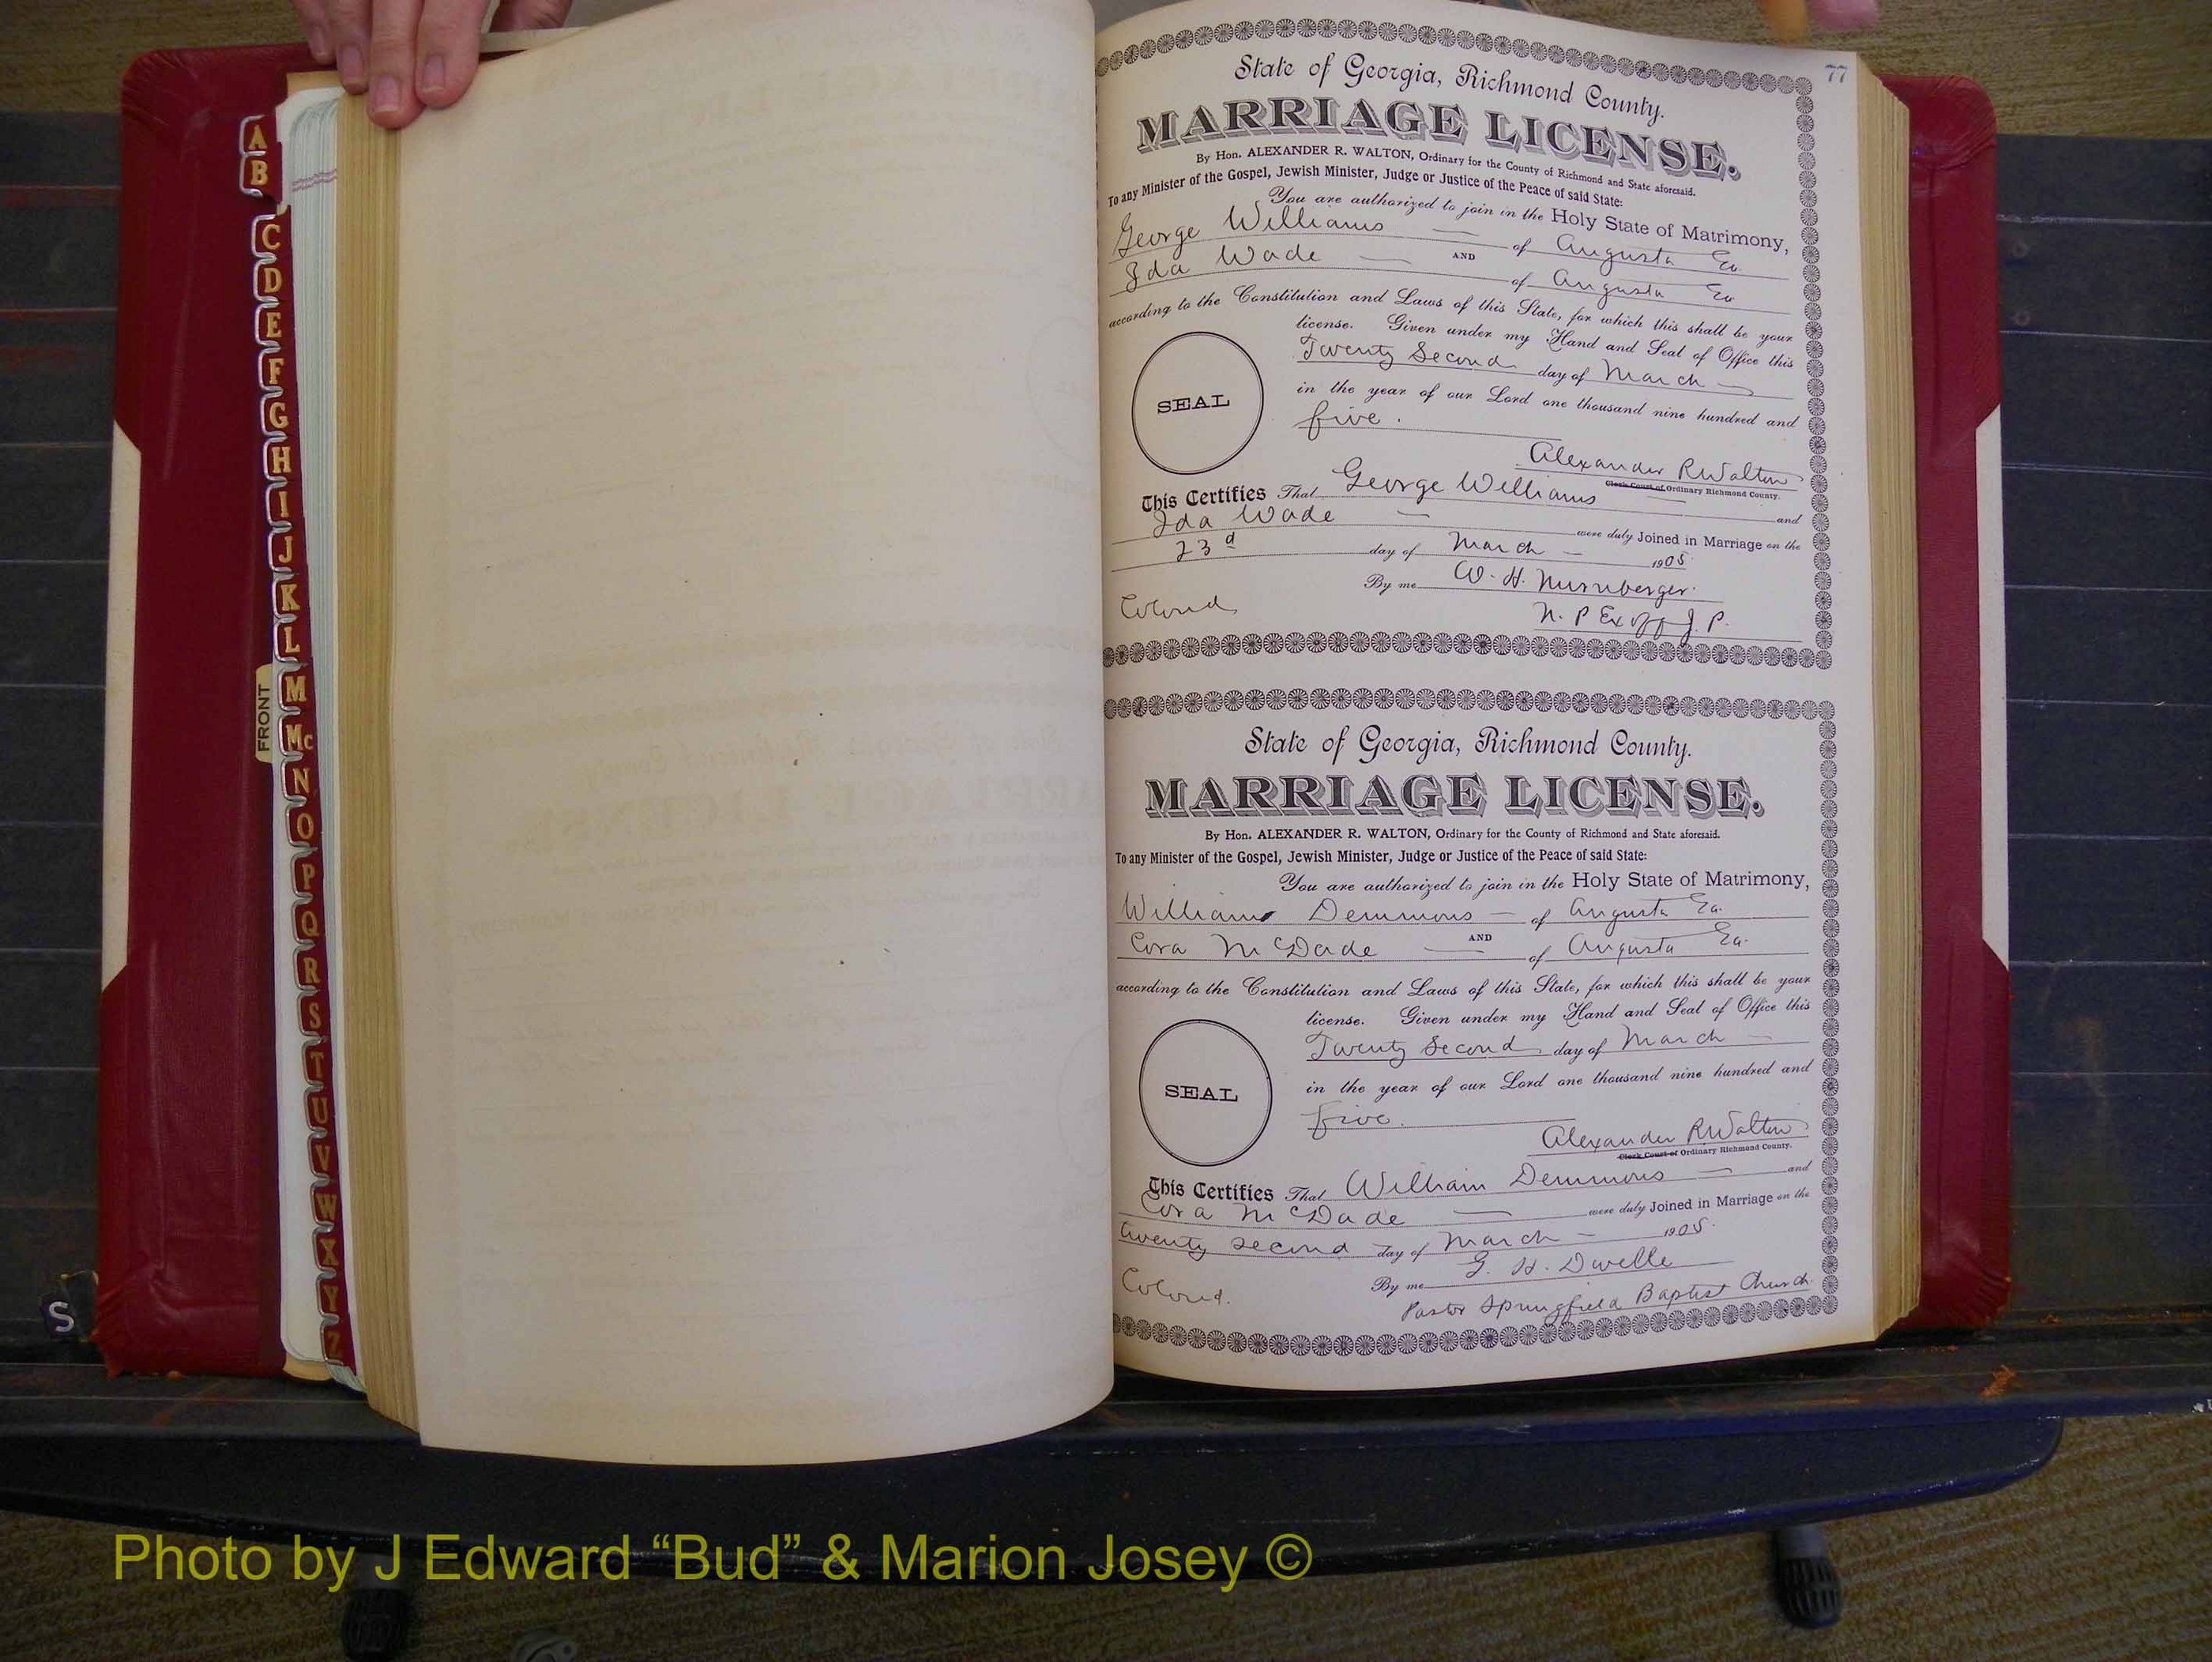 A
B
C
D
E
F
G
H
I
J
K
L
M
Mc
N
O
P
Q
R
S
T
U
V
W
X
Y
Z
FRONT
S
77
State of Georgia, Richmond County.
MARRIAGE LICENSE.
By Hon. ALEXANDER R. WALTON, Ordinary for the County of Richmond and State aforesaid.
To any Minister of the Gospel, Jewish Minister, Judge or Justice of the Peace of said State:
You are authorized to join in the Holy State of Matrimony,
George Williams of Augusta Ga.
AND
Ida Wade of Augusta Ga
according to the Constitution and Laws of this State, for which this shall be your
license. Given under my Hand and Seal of Office this
Twenty Second day of March
in the year of our Lord one thousand nine hundred and
five.
SEAL
Alexander R Walton
Clerk Court of Ordinary Richmond County.
This Certifies That George Williams and
Ida Wade were duly Joined in Marriage on the
23d day of March 1905.
By me W. H. Nurnberger.
Colored N. P Ex off J. P.
State of Georgia, Richmond County.
MARRIAGE LICENSE.
By Hon. ALEXANDER R. WALTON, Ordinary for the County of Richmond and State aforesaid.
To any Minister of the Gospel, Jewish Minister, Judge or Justice of the Peace of said State:
You are authorized to join in the Holy State of Matrimony,
William Demmons of Augusta Ga.
AND
Cora McDade of Augusta Ga.
according to the Constitution and Laws of this State, for which this shall be your
license. Given under my Hand and Seal of Office this
Twenty Second day of March
in the year of our Lord one thousand nine hundred and
Five.
SEAL
Alexander R. Walton
Clerk Court of Ordinary Richmond County.
This Certifies That William Demmons and
Cora McDade were duly Joined in Marriage on the
twenty second day of March 1905.
By me G. H. Dwelle
Colored. Pastor Springfield Baptist Church.
Photo by J Edward “Bud” & Marion Josey ©